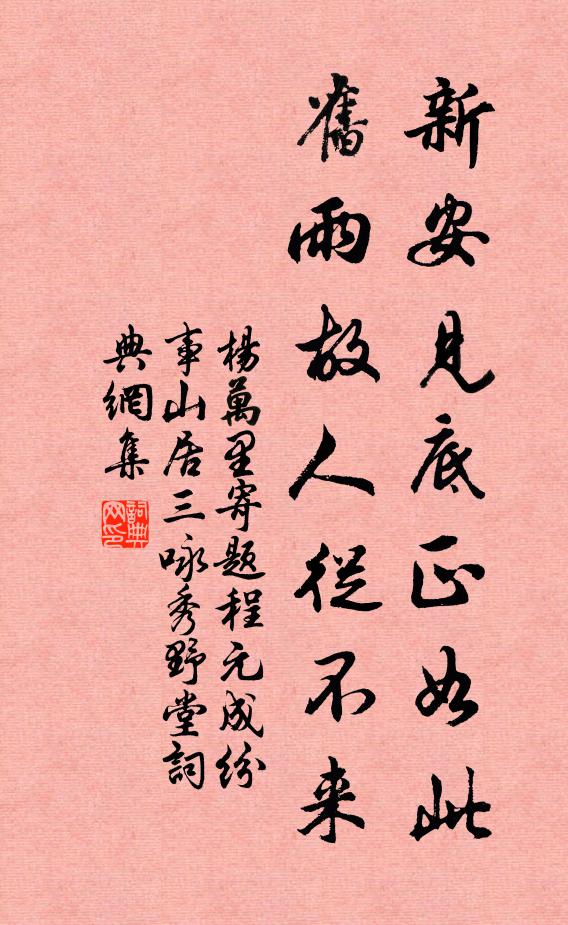 新安見底正如此
舊雨故人從不来
楊萬里寄题程元成纷
事山居三咏秀野堂詞
典網集
詞典網印